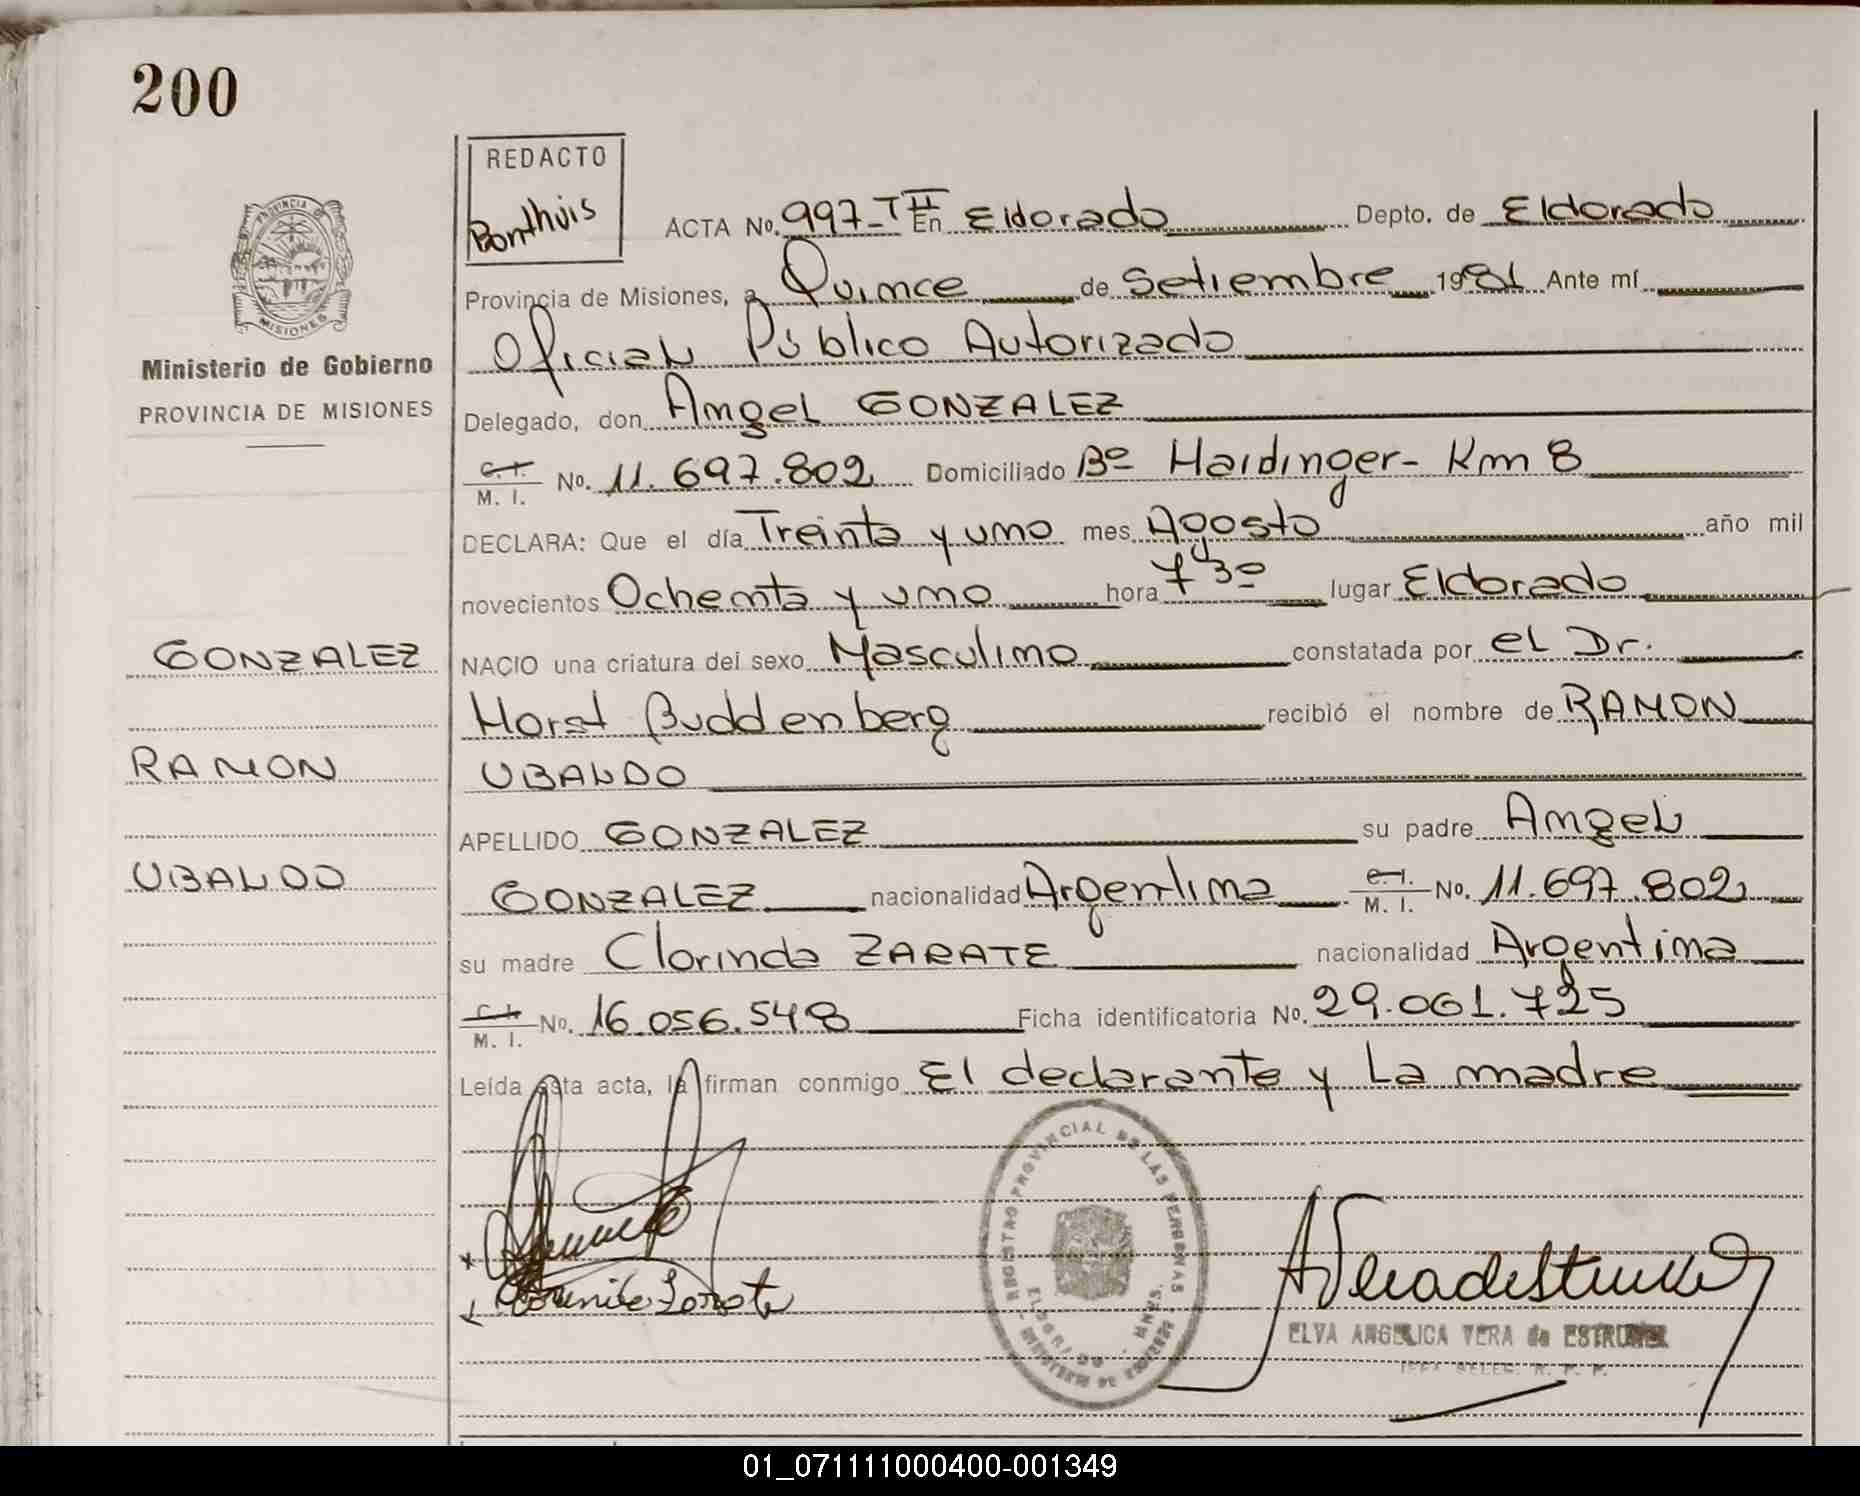 200
REDACTO
Bonthuis
PROVINCIA DE
MISIONES
Ministerio de Gobierno
PROVINCIA DE MISIONES
ACTA No. 997-TII En Eldorado Depto. de Eldorado
Provincia de Misiones, a Quince de Setiembre 1981 Ante mí
Oficial Público Autorizado
Delegado, don Angel GONZALEZ
C. I. / M. I. No. 11.697.802 Domiciliado Bº Haidinger - Km 8
DECLARA: Que el día Treinta y uno mes Agosto año mil
novecientos Ochenta y uno hora 7 30 lugar Eldorado
GONZALEZ
NACIO una criatura del sexo Masculino constatada por el Dr.
Horst Buddenberg recibió el nombre de RAMON
RAMON
UBALDO
APELLIDO GONZALEZ su padre Angel
UBALDO
GONZALEZ nacionalidad Argentina C. I. / M. I. No. 11.697.802
su madre Clorinda ZARATE nacionalidad Argentina
C. I. / M. I. No. 16.056.548 Ficha identificatoria No. 29.061.725
Leída esta acta, la firman conmigo El declarante y La madre
REGISTRO PROVINCIAL DE LAS PERSONAS
ELDORADO - MNES.
ELVA ANGELICA VERA de ESTRUMER
01_071111000400-001349